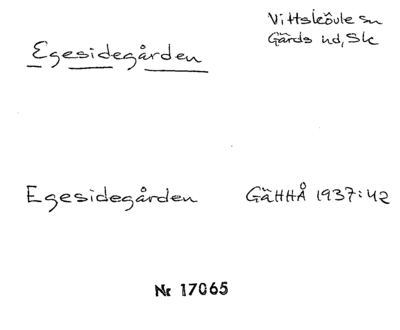 Vittskövle sn
Gärds hd, Sk
Egesidegården
Egesidegården GäHHÅ 1937:42
Nr 17065